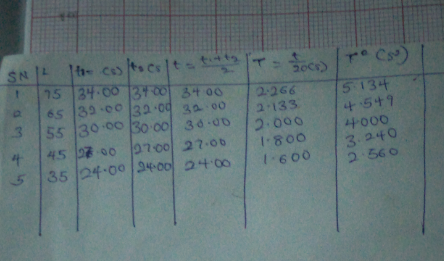 SN L t₁ (s) t₂ (s) t = t₁+t₂/2 T = t/20(s) T² (s²)
1 75 34.00 34.00 34.00 2.266 5.134
2 65 32.00 32.00 32.00 2.133 4.549
3 55 30.00 30.00 30.00 2.000 4000
4 45 27.00 27.00 27.00 1.800 3.240
5 35 24.00 24.00 24.00 1.600 2.560